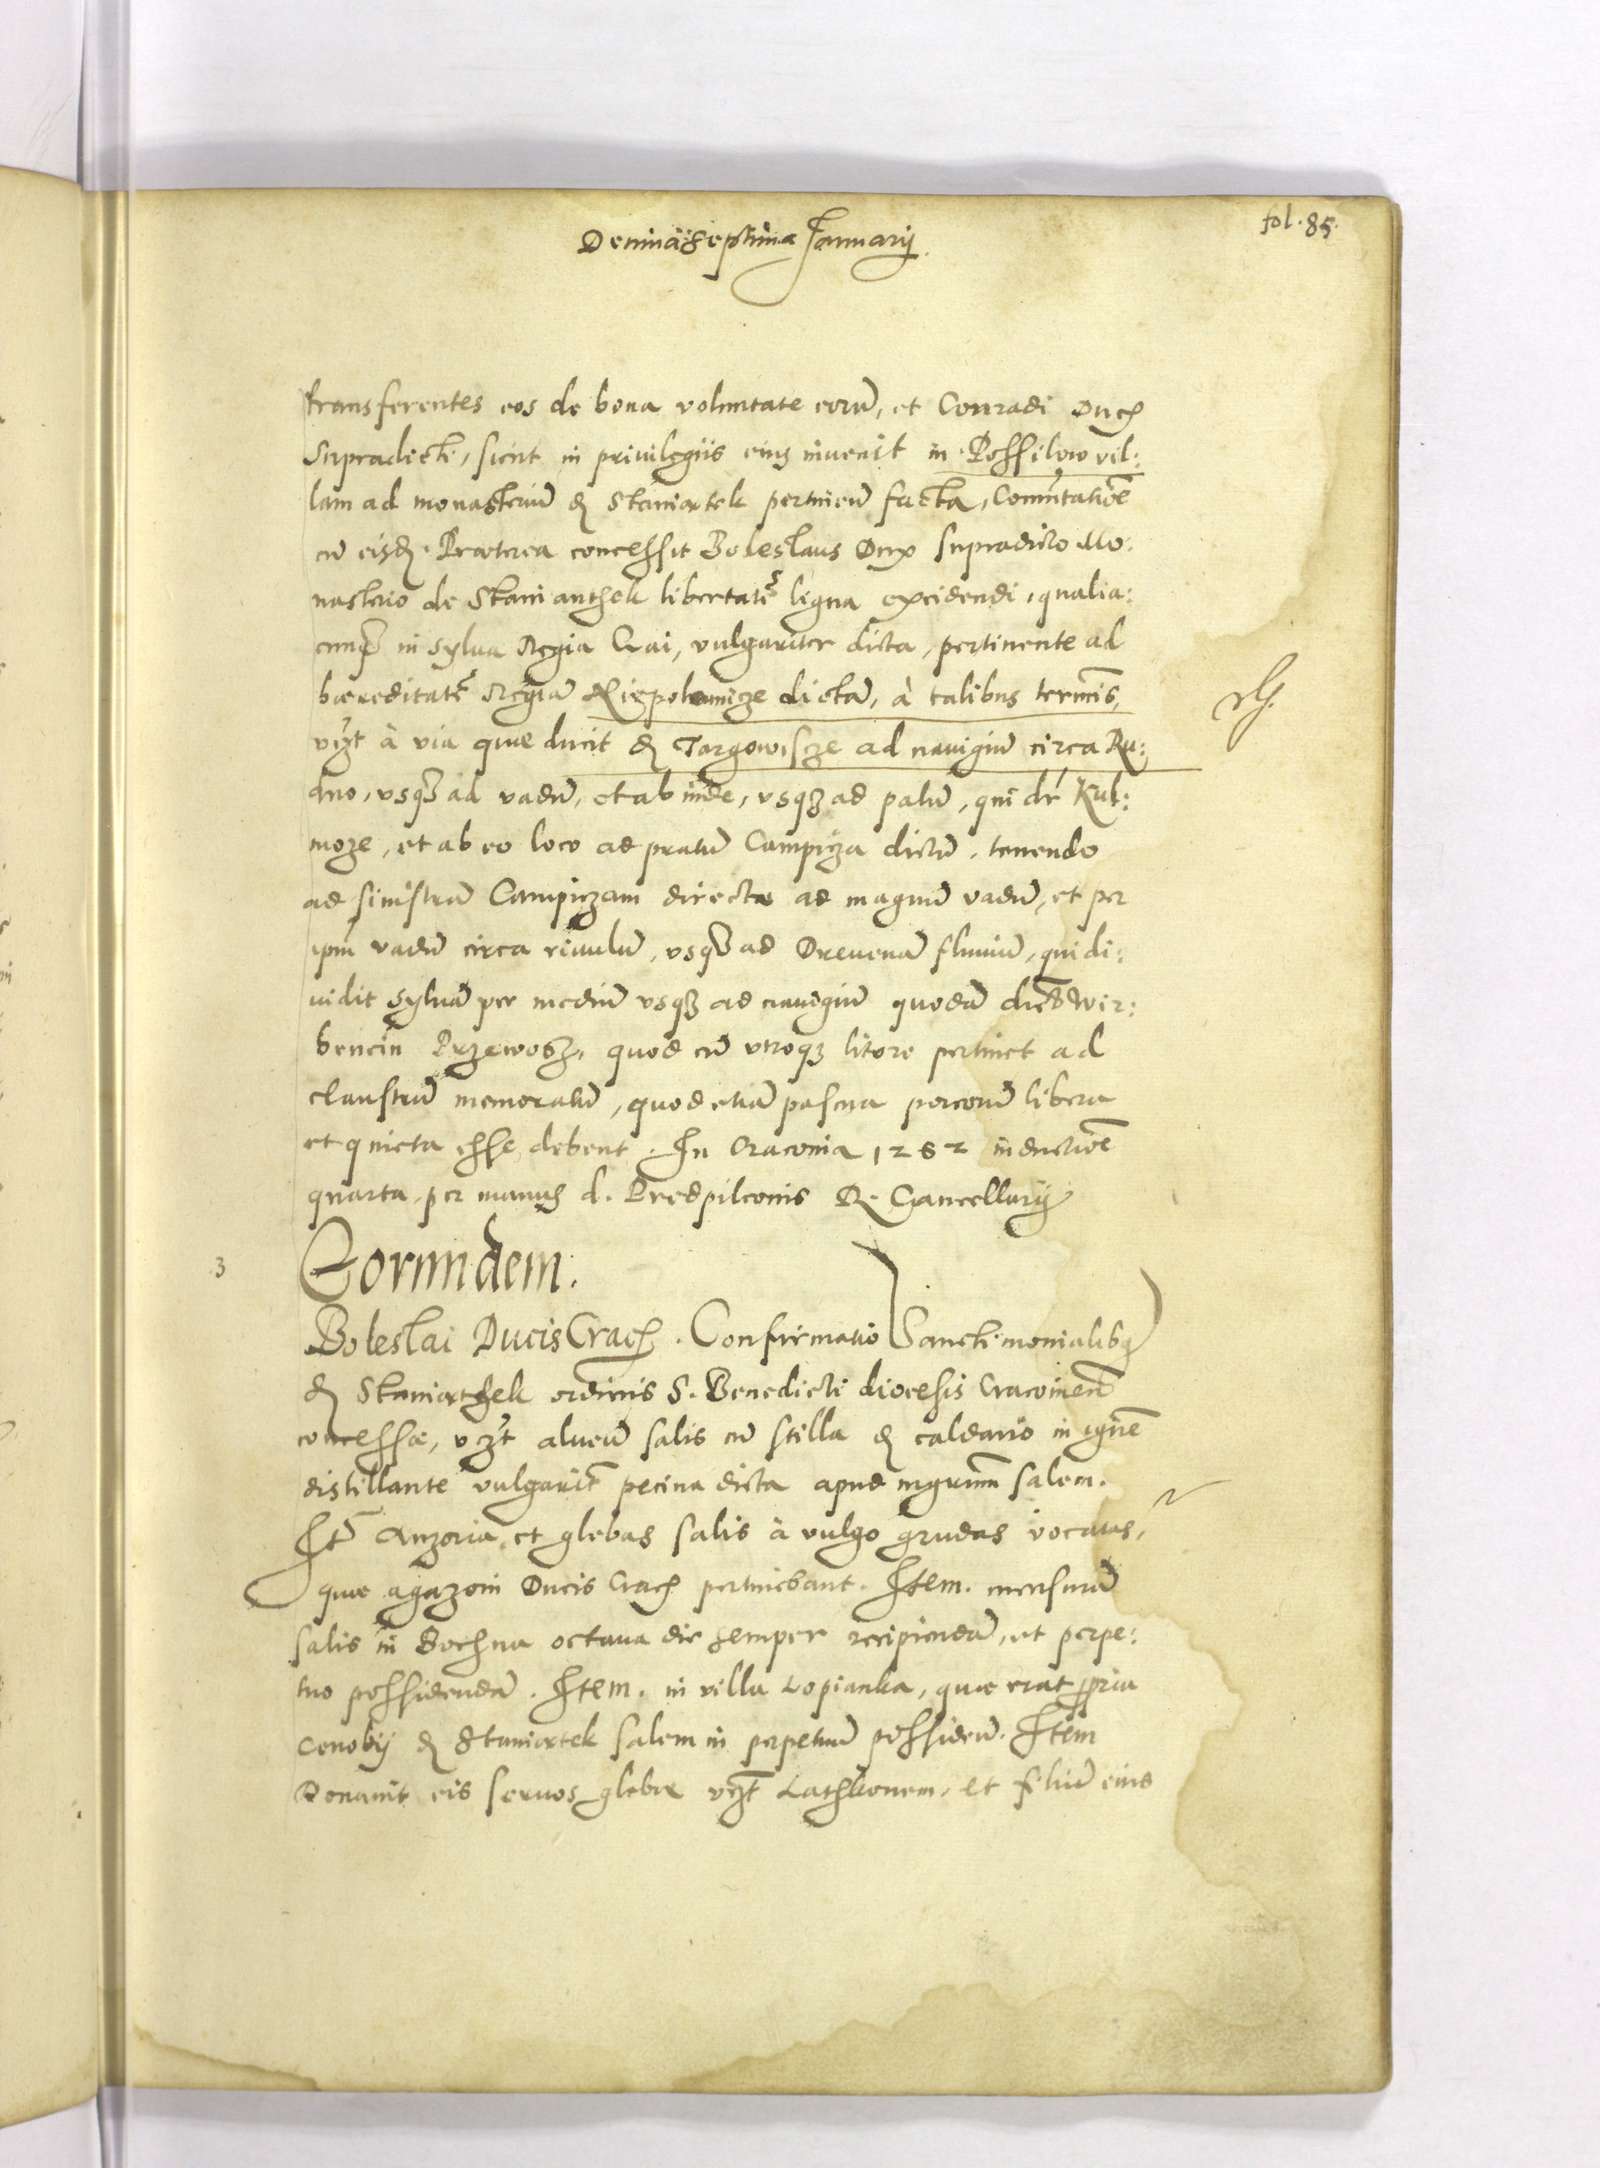 fol. 85.
Decimaseptima Januarij.
transferentes eos de bona voluntate eorũ, et Conradi Duc
supradicti, sicut in priuilegiis eius inuenit in Possilow vil:
lam ad monasteriũ d Staniątek pertineñ facta, Comutatiõe
cũ eisd. Præterea concessit Boleslaus Dux supradicto Mo:
nasterio de Stanianthek libertatẽ ligna excidendi, qualia:
cunq in sylua Regia Gai, vulgariter dicta, pertinente ad
hæreditatẽ Regiã Niepolomicze dictã, à talibus termis,
vzt à via quæ ducit d Targowiscze ad nauigiũ circa Ru:
dno, vsq ad vadũ, et ab inde, vsq ad palũ, qui dr Kul:
moze, et ab eo loco ad pratũ Campicza dictũ, tenendo
ad sinistrã Campiczam directe ad magnũ vadũ, et per
ipm vadũ circa riuulũ, vsq ad Dreuenã fluuiũ, qui di:
uidit syluã per mediũ vsq ad nauigiũ quodã dictũ Wir:
bencin Przewosz, quod cũ vtroq litore pertinet ad
claustrũ memoratũ, quod etiã pascua porcorũ libera
et quieta esse debent. In Cracouia 1262 indictiõe
quarta, per manus d. Predpilconis R. Cancellarij
3
Eorundem.
Boleslai Ducis Crac. Confirmatio Sanctimonialibq
d Staniąthek ordinis S. Benedicti diocesis Cracouieñ
concessæ, vzt alueũ salis cũ stilla d caldario in ignẽ
distillante vulgaritẽ pecina dicta apud magnum salem.
Itẽ Anzoria, et glebas salis à vulgo grudas vocatas,
quæ agazoni Ducis Crac pertinebant. Item. mensurã
salis in Bochna octaua die semper recipiendã, et perpe:
tuo possidendã. Item. in villa Lopianka, quæ erat propria
Cenobij d Staniątek salem in perpetuũ possideñ. Item
Donauit eis seruos glebæ vzt Lathkonem, et filiũ eius